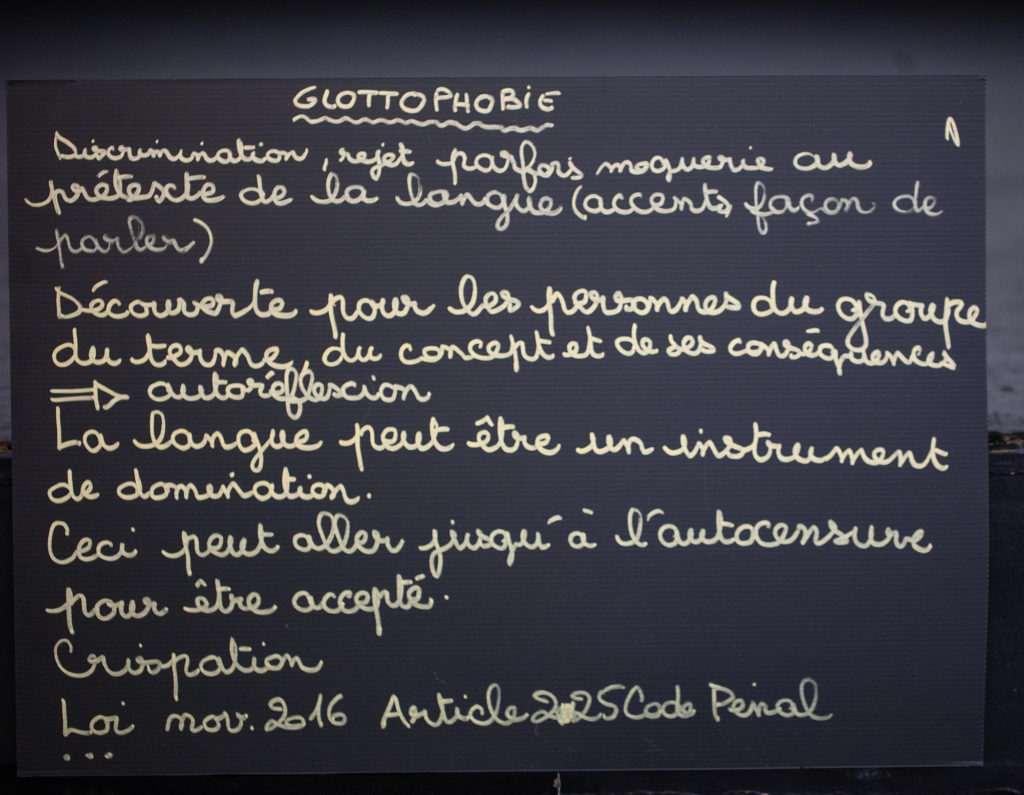 GLOTTOPHOBIE
Discrimination, rejet parfois moquerie au
prétexte de la langue (accents, façon de
parler)
Découverte pour les personnes du groupe
du terme, du concept et de ses conséquences
⇒ autoréflexion
La langue peut être un instrument
de domination.
Ceci peut aller jusqu'à l'autocensure
pour être accepté.
Crispation
Loi nov. 2016 Article 225 Code Pénal
...